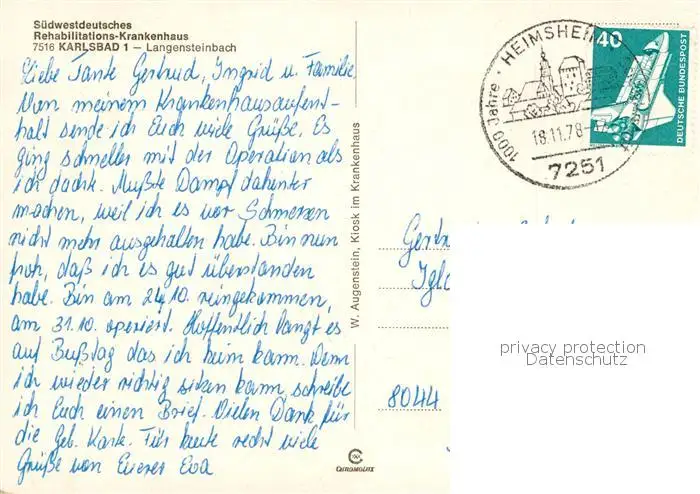 Südwestdeutsches
Rehabilitations-Krankenhaus
7516 KARLSBAD 1 – Langensteinbach
Liebe Tante Gertrud, Ingrid u. Familie,
Von meinem Krankenhausaufent-
halt sende ich Euch viele Grüße. Es
ging schneller mit der Operation als
ich dacht. Mußte Dampf dahinter
machen, weil ich es vor Schmerzen
nicht mehr ausgehalten habe. Bin nun
froh, daß ich es gut überstanden
habe. Bin am 24.10. reingekommen,
am 31.10. operiert. Hoffentlich langt es
auf Bußtag das ich heim kann. Wenn
ich wieder richtig sitzen kann, schreibe
ich Euch einen Brief. Vielen Dank für
die Geb. Karte. Für heute recht viele
Grüße von Eurer Eva
W. Augenstein, Kiosk im Krankenhaus
CHROMOLUX
1000 Jahre · HEIMSHEIM
18.11.78
7251
40
DEUTSCHE BUNDESPOST
8044
privacy protection
Datenschutz